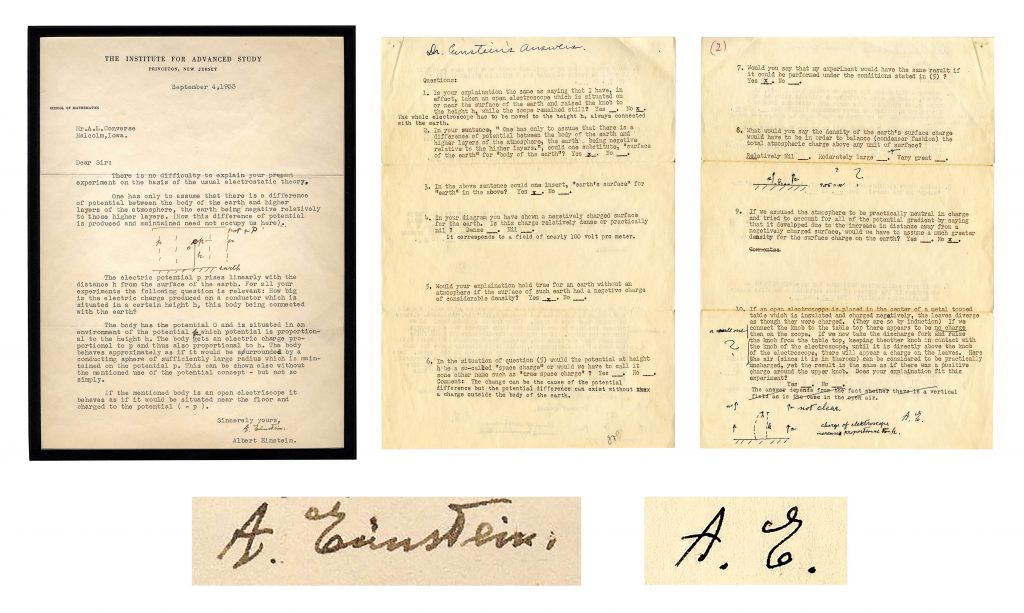 THE INSTITUTE FOR ADVANCED STUDY
PRINCETON, NEW JERSEY
September 4,1953
SCHOOL OF MATHEMATICS
Mr.A.L.Converse
Malcolm,Iowa.
Dear Sir:
There is no difficulty to explain your present
experiment on the basis of the usual electrostatic theory.
One has only to assume that there is a difference
of potential between the body of the earth and higher
layers of the atmosphere, the earth being negative relatively
to those higher layers. (How this difference of potential
is produced and maintained need not occupy us here).
earth
The electric potential p rises linearly with the
distance h from the surface of the earth. For all your
experiments the following question is relevant: How big
is the electric charge produced on a conductor which is
situated in a certain height h, this body being connected
with the earth?
The body has the potential 0 and is situated in an
environment of the potential p which potential is proportion-
al to the height h. The body gets an electric charge pro-
portional to p and thus also proportional to h. The body
behaves approximately as if it would be surrounded by a
conducting sphere of sufficiently large radius which is main-
tained on the potential p. This can be shown also without
the mentioned use of the potential concept - but not so
simply.
If the mentioned body is an open electriscope it
behaves as if it would be situated near the floor and
charged to the potential ( - p).
Sincerely yours,
A. Einstein.
Albert Einstein.
Dr. Einstein's Answers.
Questions:
1. Is your explaination the same as saying that I have, in
effect, taken an open electroscope which is situated on
or near the surface of the earth and raised the knob to
the height h, while the scope remained still? Yes __. No x.
The whole electroscope has to be moved to the height h, always connected
with the earth.
2. In your sentence, " One has only to assume that there is a
difference of potential between the body of the earth and
higher layers of the atmosphere, the earth being negative
relative to the higher layers.", could one substitute, "surface
of the earth" for "body of the earth"? Yes x. No __.
3. In the above sentence could one insert, "earth's surface" for
"earth" in the above? Yes x. No __.
4. In your diagram you have shown a negatively charged surface
for the earth. Is this charge relatively dense or practically
nil ? Dense __. Nil __.
it corresponds to a field of nearly 100 volt pro meter.
5. Would your explaination hold true for an earth without an
atmosphere if the surface of such earth had a negative charge
of considerable density? Yes x. No __.
6. In the situation of question (5) would the potential at height
h be a so-called "space charge" or would we have to call it
some other name such as "free space charge" ? Yes __. No __.
Comment: The change can be the cause of the potential
difference but the potential difference can exist without
a charge outside the body of the earth.
(2)
7. Would you say that my experiment would have the same result if
it could be performed under the conditions stated in (5) ?
Yes x. No __.
8. What would you say the density of the earth's surface charge
would have to be in order to balance (condenser fashion) the
total atmospheric charge above any unit of surface?
Relatively Nil __. Moderately large __. Very great __.
9. If we assumed the atmosphere to be practically neutral in charge
and tried to account for all of the potential gradient by saying
that it developed due to the increase in distance away from a
negatively charged surface, would we have to assume a much greater
density for the surface charge on the earth? Yes __. No x.
Comments:
10. If an open electroscope is placed in the center of a metal topped
table which is insulated and charged negatively, the leaves diverge
as though they were charged. (They are so by induction) If we
connect the knob to the table top there appears to be no charge
then on the scope. If we now take the discharge fork and raise
the knob from the table top, keeping the other knob in contact with
the knob of the electroscope, until it is directly above the knob
of the electroscope, there will appear a charge on the leaves. Here
the air (since it is in the room) can be considered to be practically
uncharged, yet the result is the same as if there was a positive
charge around the upper knob. Does your explanation fit this
experiment?
Yes __. No __.
The answer depends from the fact whether there is a vertical
field as is the case in the open air.
not clear.
A. E.
charge of elektroscope
increases proportional to h.
A. Einstein.
A. E.